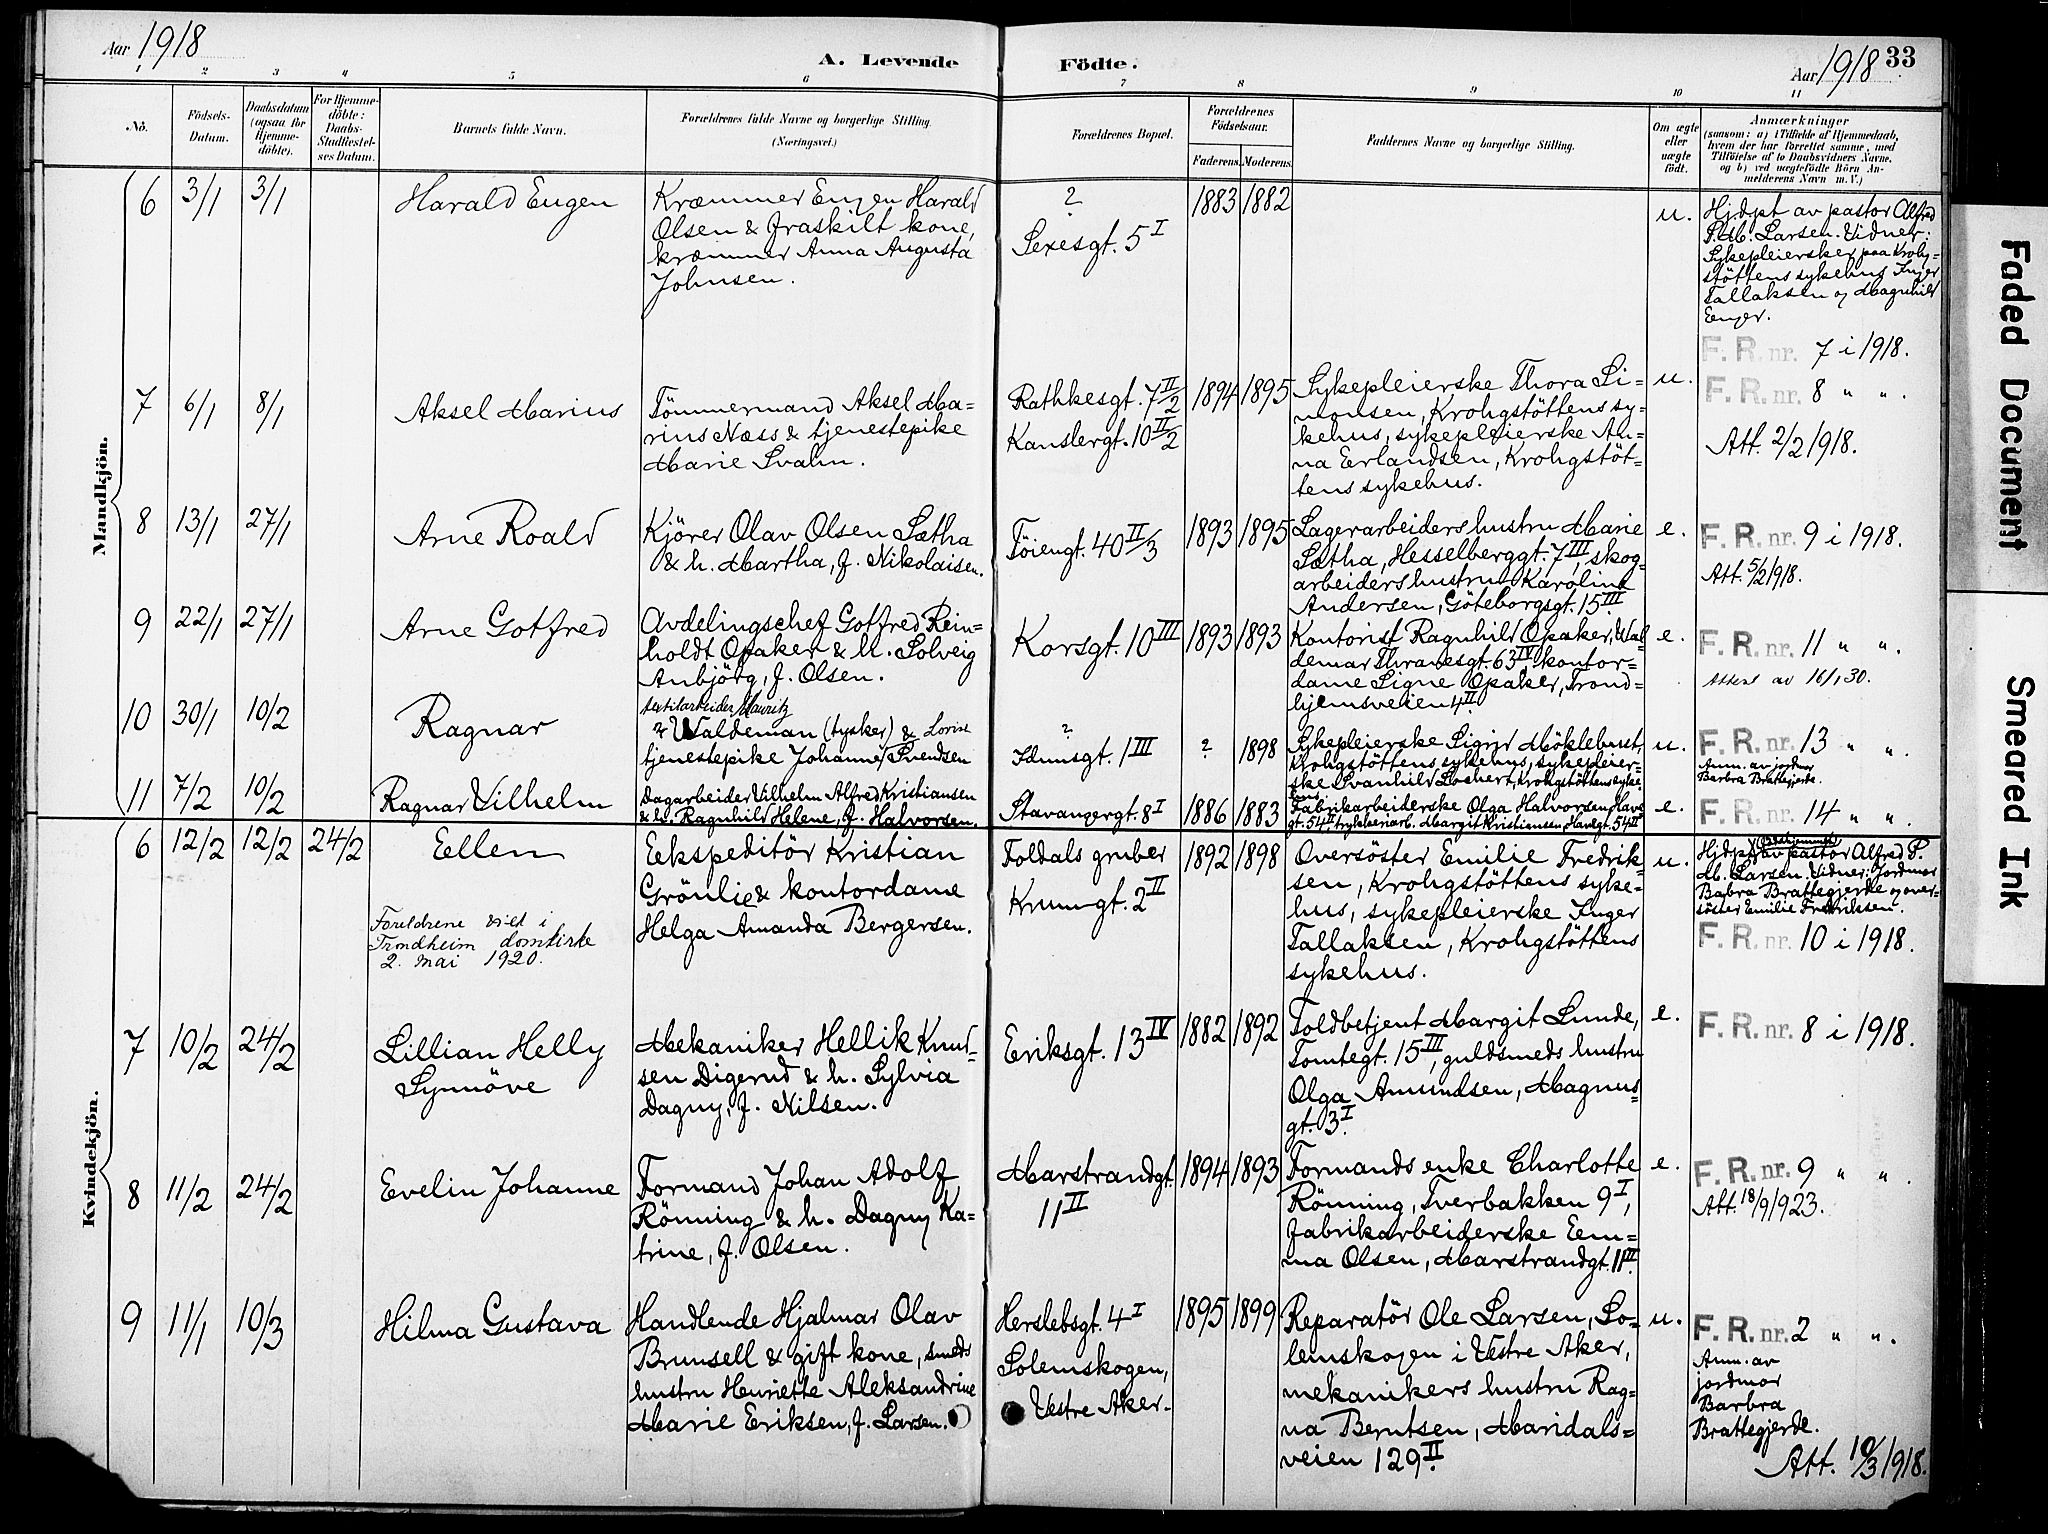 Aar 1918
A. Levende Födte.
Aar 1918 33
1 2 3 4 5 6 7 8 9 10 11
No.
Födsels-Datum.
Daabsdatum (ogsaa for Hjemme-döbte).
For Hjemme-döbte: Daabs-Stadfæstel-ses Datum.
Barnets fulde Navn.
Forældrenes fulde Navne og borgerlige Stilling. (Næringsvei.)
Forældrenes Bopæl.
Forældrenes Födselsaar.
Faderens. Moderens.
Faddernes Navne og borgerlige Stilling.
Om ægte eller uægte födt.
Anmærkninger
(saasom: a) i Tilfælde af Hjemmedaab,
hvem der har forrettet samme, med
Tilföielse af to Daabsvidners Navne,
og b) ved uægtefödte Börn An-
melderens Navn m. V.)
Mandkjön.
6 3/1 3/1 Harald Eugen
Kræmmer Eugen Harald
Olsen & fraskilt kone,
kræmmer Anna Augusta
Johnsen.
?
Sexesgt. 5 I
1883 1882
u.
Hjdpt av pastor Alfred
P. M. Larsen. Vidner:
Sykepleiersker paa Krohg-
stöttens sykehus Inger
Tallaksen og Magnhild
Enger.
F. R. nr. 7 i 1918.
7 6/1 8/1 Aksel Marius
Tömmermand Aksel Ma=
rius Næss & tjenestepike
Marie Svahn.
Rathkesgt. 7 II/2
Kanslergt. 10 II/2
1894 1895
Sykepleierske Thora Si=
monsen, Krohgstöttens sy-
kehus, sykepleierske An=
na Erlandsen, Krohgstöt=
tens sykehus.
u.
F. R. nr. 8 " ".
Att. 2/2 1918.
8 13/1 27/1 Arne Roald
Kjörer Olav Olsen Sætha
& h. Martha, f. Nikolaisen.
Töiengt. 40 II/3
1893 1895
Lagerarbeiders hustru Marie
Sætha, Hesselberggt. 7 III, skog-
arbeiders hustru Karoline
Andersen, Göteborgsgt. 15 III.
e.
F. R. nr. 9 i 1918.
Att. 5/2 1918.
9 22/1 27/1 Arne Gotfred
Avdelingschef Gotfred Rein=
holdt Opaker & h. Solveig
Anbjörg, f. Olsen.
Korsgt. 10 III
1893 1893
Kontorist Ragnhild Opaker, Wal
demar Thranesgt. 63 IV, kontor=
dame Signe Opaker, Trond=
hjemsveien 4 II.
e.
F. R. nr. 11 " ".
Attest av 16/1, 30.
10 30/1 10/2 Ragnar
textilarbeider Mauritz
? Waldeman (tysker) & Lovise
tjenestepike Johanne Svendsen
?
Idunsgt. 1 III
? 1898
Sykepleierske Sigrid Möklebust,
Krohgstöttens sykehus, sykepleier=
ske Svanhild Löchert, Krohgstöttens syke-
hus.
u.
F. R. nr. 13 " ".
Anm. av jordmor
Barbra Brattegjerde.
11 7/2 10/2 Ragnar Vilhelm
Dagarbeider Vilhelm Alfred Kristiansen
& h. Ragnhild Helene, f. Halvorsen.
Stavangergt. 8 I
1886 1883
Fabrikarbeiderske Olga Halvorsen, Have
gt. 54 II, trykkeriarb. Margit Kristiansen, Havegt. 54 II
e.
F. R. nr. 14 " ".
Kvindekjön.
6 12/2 12/2 24/2 Ellen
Forældrene viet i
Trondheim domkirke
2. mai 1920.
Ekspeditör Kristian
Grönlie & kontordame
Helga Amanda Bergersen.
Foldals gruber
Krumgt. 2 II
1892 1898
Oversöster Emilie Fredrik
sen, Krohgstöttens syke=
hus, sykepleierske Inger
Tallaksen, Krohgstöttens
sykehus.
u.
Hjdpt av pastor Alfred P.
M. Larsen. Vidner: Jordmor
Babra Brattegjerde og over-
söster Emilie Fredriksen.
F. R. nr. 10 i 1918.
7 10/2 24/2 Lillian Helly
Synnöve
Mekaniker Hellik Knud=
sen Digerud & h. Sylvia
Dagny, f. Nilsen.
Eriksgt. 13 IV
1882 1892
Toldbetjent Margit Lunde,
Tomtegt. 15 III, guldsmeds hustru
Olga Amundsen, Magnus=
gt. 3 I.
e.
F. R. nr. 8 i 1918.
8 11/2 24/2 Evelin Johanne
Formand Johan Adolf
Rönning & h. Dagny Ka=
trine, f. Olsen.
Marstrandgt.
11 II
1894 1893
Formands enke Charlotte
Rönning, Tverbakken 9 I,
fabrikarbeiderske Em=
ma Olsen, Marstrandgt. 11 II.
e.
F. R. nr. 9 " ".
Att. 18/9 1923.
9 11/1 10/3 Hilma Gustava
Handlende Hjalmar Olav
Brunsell & gift kone, smeds
hustru Henriette Aleksandrine
Marie Eriksen, f. Larsen.
Herslebsgt. 4 I
Solemskogen,
Vestre Aker.
1895 1899
Reparatör Ole Larsen, So=
lemskogen i Vestre Aker,
mekanikers hustru Rag=
na Berntsen, Maridals=
veien 129 II.
u.
F. R. nr. 2 " ".
Anm. av
jordmor
Barbra
Brattegjerde.
Att. 10/3 1918.
Faded Document
Smeared Ink